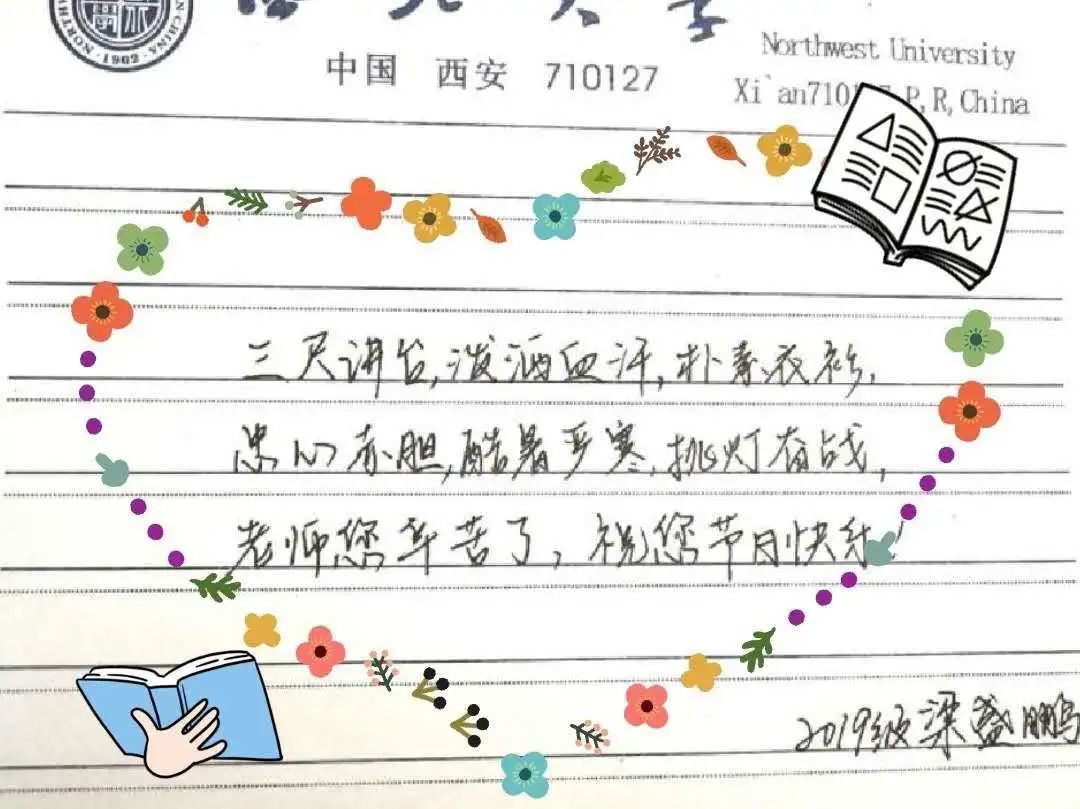 西北大学
Northwest University
中国 西安 710127
Xi'an710127,P,R,China
NORTHW CHINA
1902
三尺讲台,泼洒血汗,朴素衣衫,
忠心赤胆,酷暑严寒,挑灯奋战,
老师您辛苦了,祝您节日快乐!
2019级梁盛鹏